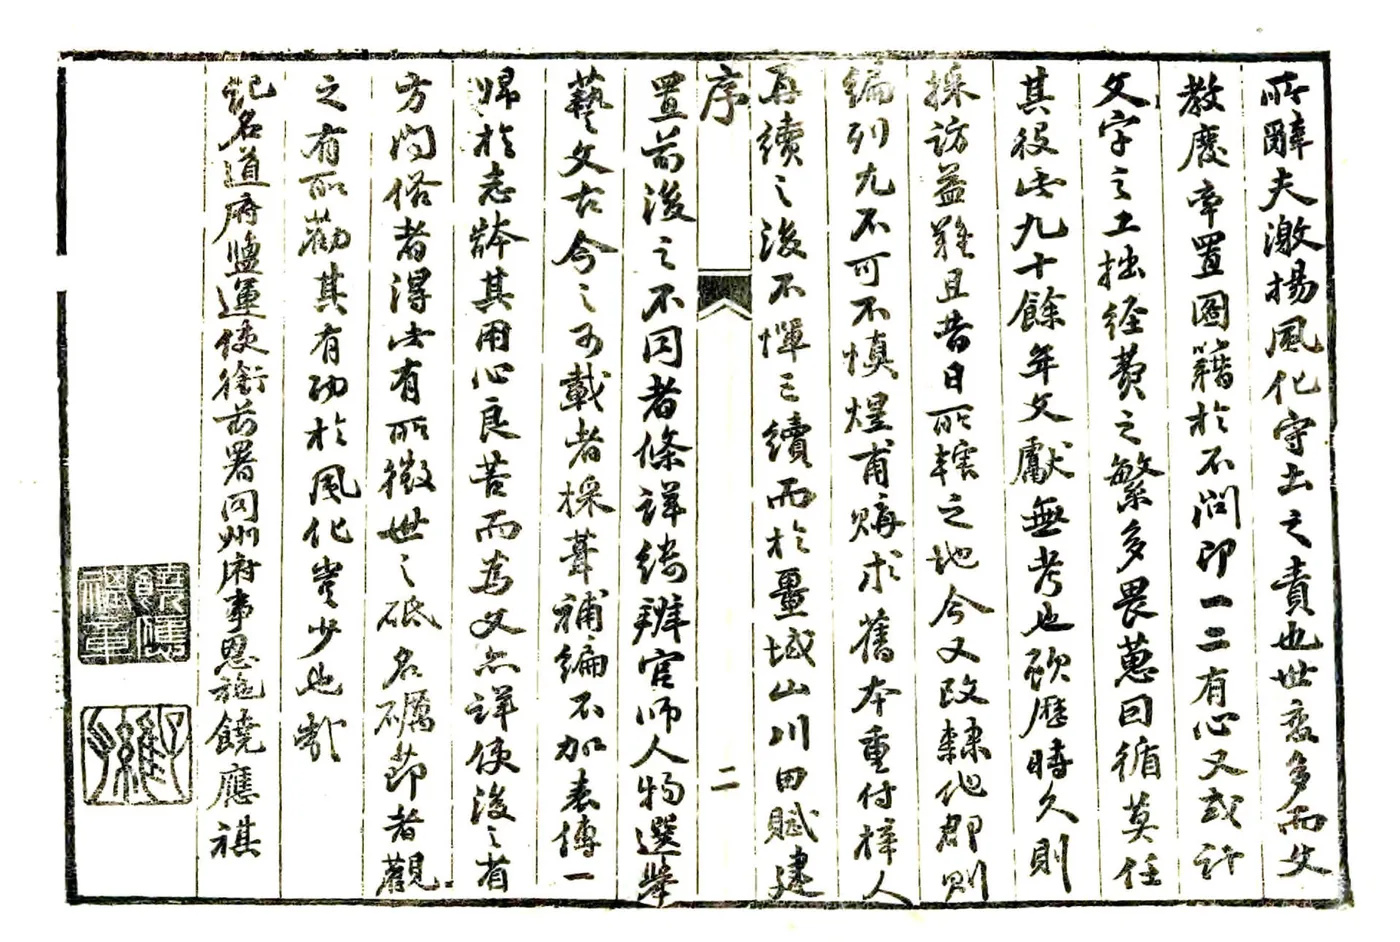 所辭夫激揚風化守土之責也世衰多而文
教廢率置圖籍於不問即一二有心又或計
文字之工拙經費之繁多畏葸因循莫任
其役此九十餘年文獻無考也顧歷時久則
採訪益難且昔日所轄之地今又改隸他郡則
編列尤不可不慎煜甫購求舊本重付梓人
再續之後不憚三續而於疆域山川田賦建
序
二
置前後之不同者條詳縷辨官師人物選舉
藝文古今之可載者採葺補編不加表傳一
歸於志體其用心良苦而為文亦詳使後之有
方問俗者得此有所徵世之砥名礪節者觀
之有所勸其有功於風化豈少也哉
記名道府鹽運使銜前署同州府事恩施饒應祺